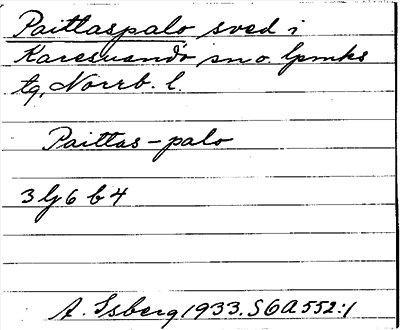 Paittaspalo sved i
Karesuando sn o. lpmks
tg, Norrb. l.
Paittas-palo
3 lJ 6 b 4
A. Isberg 1933. SGA 552:1